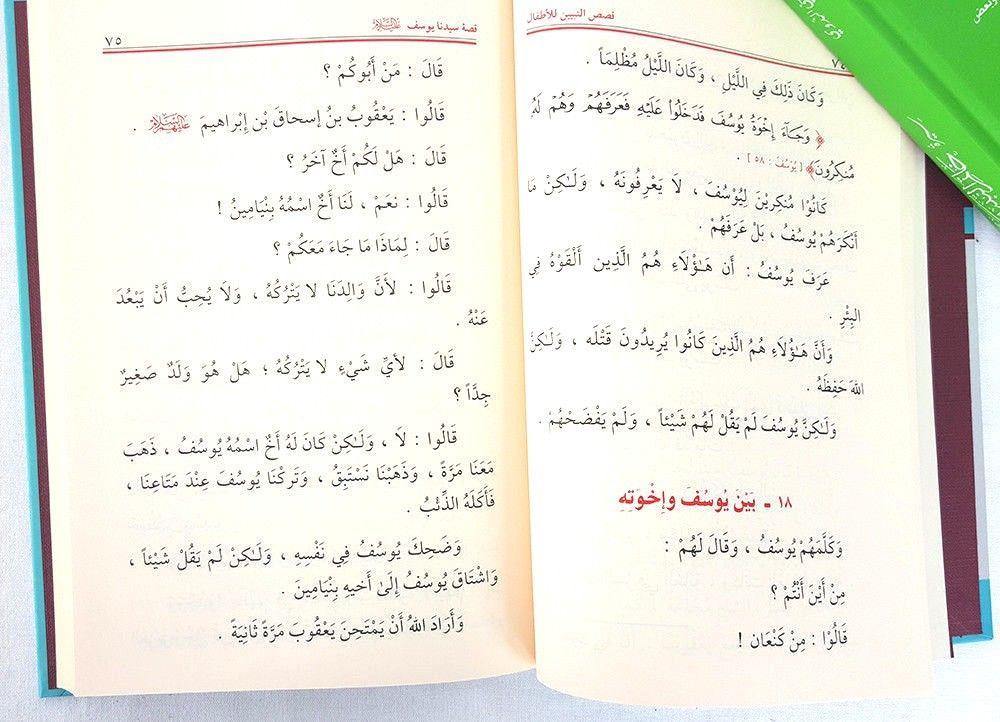 قصص النبيين للأطفال
٧٤
وَكَانَ ذَلِكَ فِي اللَّيْلِ ، وَكَانَ اللَّيْلُ مُظْلِمَاً .
﴿ وَجَآءَ إِخْوَةُ يُوسُفَ فَدَخَلُواْ عَلَيْهِ فَعَرَفَهُمْ وَهُمْ لَهُ
مُنكِرُونَ﴾ [يُوسُف : ٥٨] .
كَانُوْا مُنكِرِيْنَ لِيُوْسُفَ، لَا يَعْرِفُونَهُ ، وَلَـٰكِنْ مَا
أَنْكَرَهُمْ يُوسُفُ ، بَلْ عَرَفَهُمْ .
عَرَفَ يُوسُفُ : أَن هَـٰؤُلَاءِ هُمُ الَّذِين أَلْقَوْهُ فِي
البِئْرِ .
وَأَنَّ هَـٰؤُلَاءِ هُمُ الَّذِينَ كَانُوا يُرِيدُونَ قَتْلَه ، وَلَـٰكِنَّ
اللهَ حَفِظَهُ .
وَلَـٰكِنَّ يُوسُفَ لَمْ يَقُلْ لَهُمْ شَيْئاً ، وَلَمْ يَفْضَحْهُمْ .
١٨ ـ بَيْنَ يُوسُفَ وإِخْوَتِهِ
وَكَلَّمَهُمْ يُوسُفُ ، وَقَالَ لَهُمْ :
مِنْ أَيْنَ أَنْتُمْ ؟
قَالُوْا : مِنْ كَنْعَان !
قصة سيدنا يوسف عليه السلام
٧٥
قَالَ : مَنْ أَبُوكُمْ ؟
قَالُوا : يَعْقُوبُ بنُ إسحاقَ بْنِ إبْراهيمَ عليهم السلام .
قَالَ : هَلْ لَكُمْ أَخٌ آخَرُ ؟
قَالُوا : نعَمْ ، لَنَا أَخٌ اسْمُهُ بِنْيَامِينُ !
قَالَ : لِمَاذَا مَا جَاءَ مَعَكُمْ ؟
قَالُوا : لأَنَّ وَالِدَنَا لا يَتْرُكُهُ ، وَلَا يُحِبُّ أَنْ يَبْعُدَ
عَنْهُ .
قَالَ : لأَيِّ شَيْءٍ لا يَتْرُكُهُ ؛ هَلْ هُوَ وَلَدٌ صَغِيرٌ
جِدَّاً ؟
قَالُوا : لَا ، وَلَـٰكِنْ كَانَ لَهُ أَخٌ اسْمُهُ يُوسُفُ ، ذَهَبَ
مَعَنَا مَرَّةً ، وَذَهَبْنَا نَسْتَبِقُ ، وَتَرَكْنَا يُوسُفَ عِنْدَ مَتَاعِنَا ،
فَأَكَلَهُ الذِّئْبُ .
وَضَحِكَ يُوسُفُ فِي نَفْسِهِ ، وَلَـٰكِنْ لَمْ يَقُلْ شَيْئاً ،
وَاشْتَاقَ يُوسُفُ إلَىٰ أَخيهِ بِنْيَامِينَ .
وَأَرَادَ اللهُ أَنْ يَمْتَحِنَ يَعْقُوبَ مَرَّةً ثَانِيَةً .